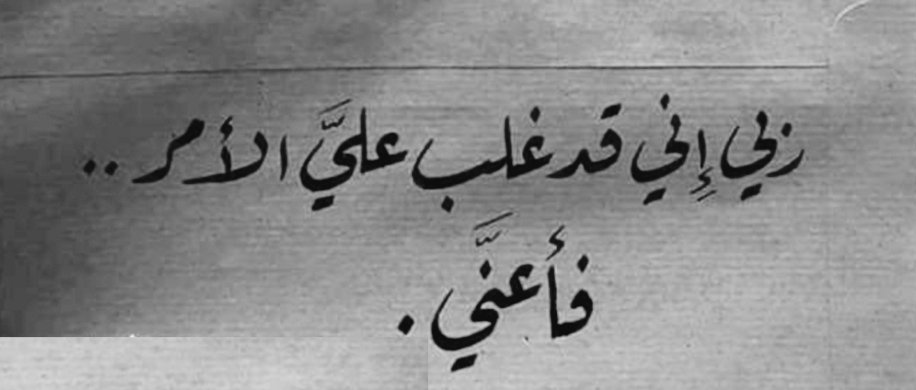 ربي إني قد غلب عليَّ الأمر ..
فأعنَّي .